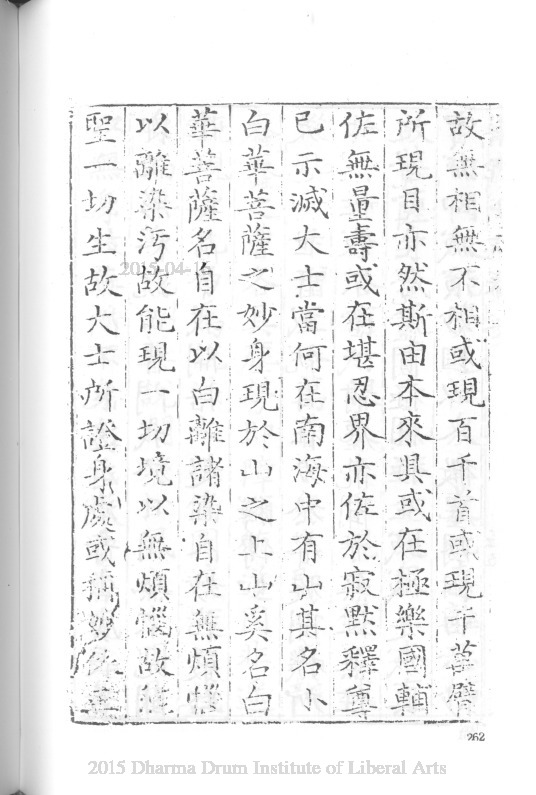 故無相無不相或現百千首或現千萬臂
所現目亦然斯由本來具或在極樂國輔
佐無量壽或在堪忍界亦佐於寂默釋尊
已示滅大士當何在南海中有山其名小
白華菩薩之妙身現於山之上山奚名白
華菩薩名自在以白離諸染自在無煩惱
以離染污故能現一切境以無煩惱故能
聖一切生故大士所證身處或稱妙
262
2015-04-1
2015 Dharma Drum Institute of Liberal Arts